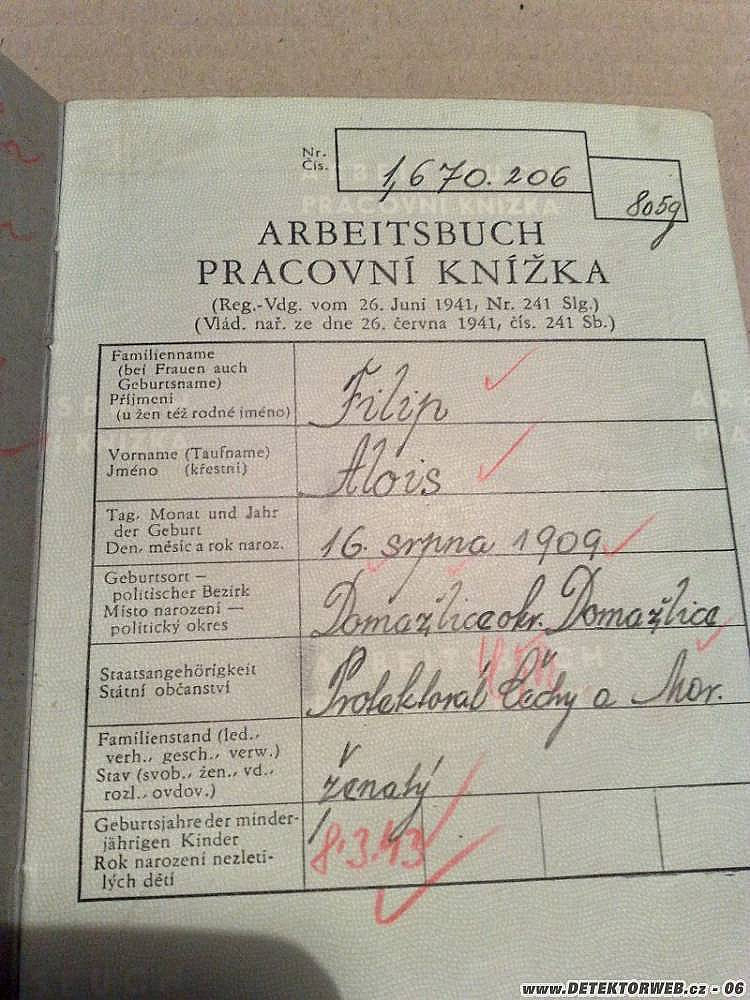 Nr.
Čís.
1,670.206
805g
ARBEITSBUCH
PRACOVNÍ KNÍŽKA
(Reg.-Vdg. vom 26. Juni 1941, Nr. 241 Slg.)
(Vlád. nař. ze dne 26. června 1941, čís. 241 Sb.)
Familienname
(bei Frauen auch
Geburtsname)
Příjmení
(u žen též rodné jméno)
Filip
Vorname (Taufname)
Jméno (křestní)
Alois
Tag, Monat und Jahr
der Geburt
Den, měsíc a rok naroz.
16. srpna 1909
Geburtsort —
politischer Bezirk
Místo narození —
politický okres
Domažlice okr. Domažlice
Staatsangehörigkeit
Státní občanství
Protektorát Čechy a Mor.
Familienstand (led.,
verh., gesch., verw.)
Stav (svob., žen., vd.,
rozl., ovdov.)
ženatý
Geburtsjahre der minder-
jährigen Kinder
Rok narození nezleti-
lých dětí
8.3.43
www.DETEKTORWEB.cz - 06